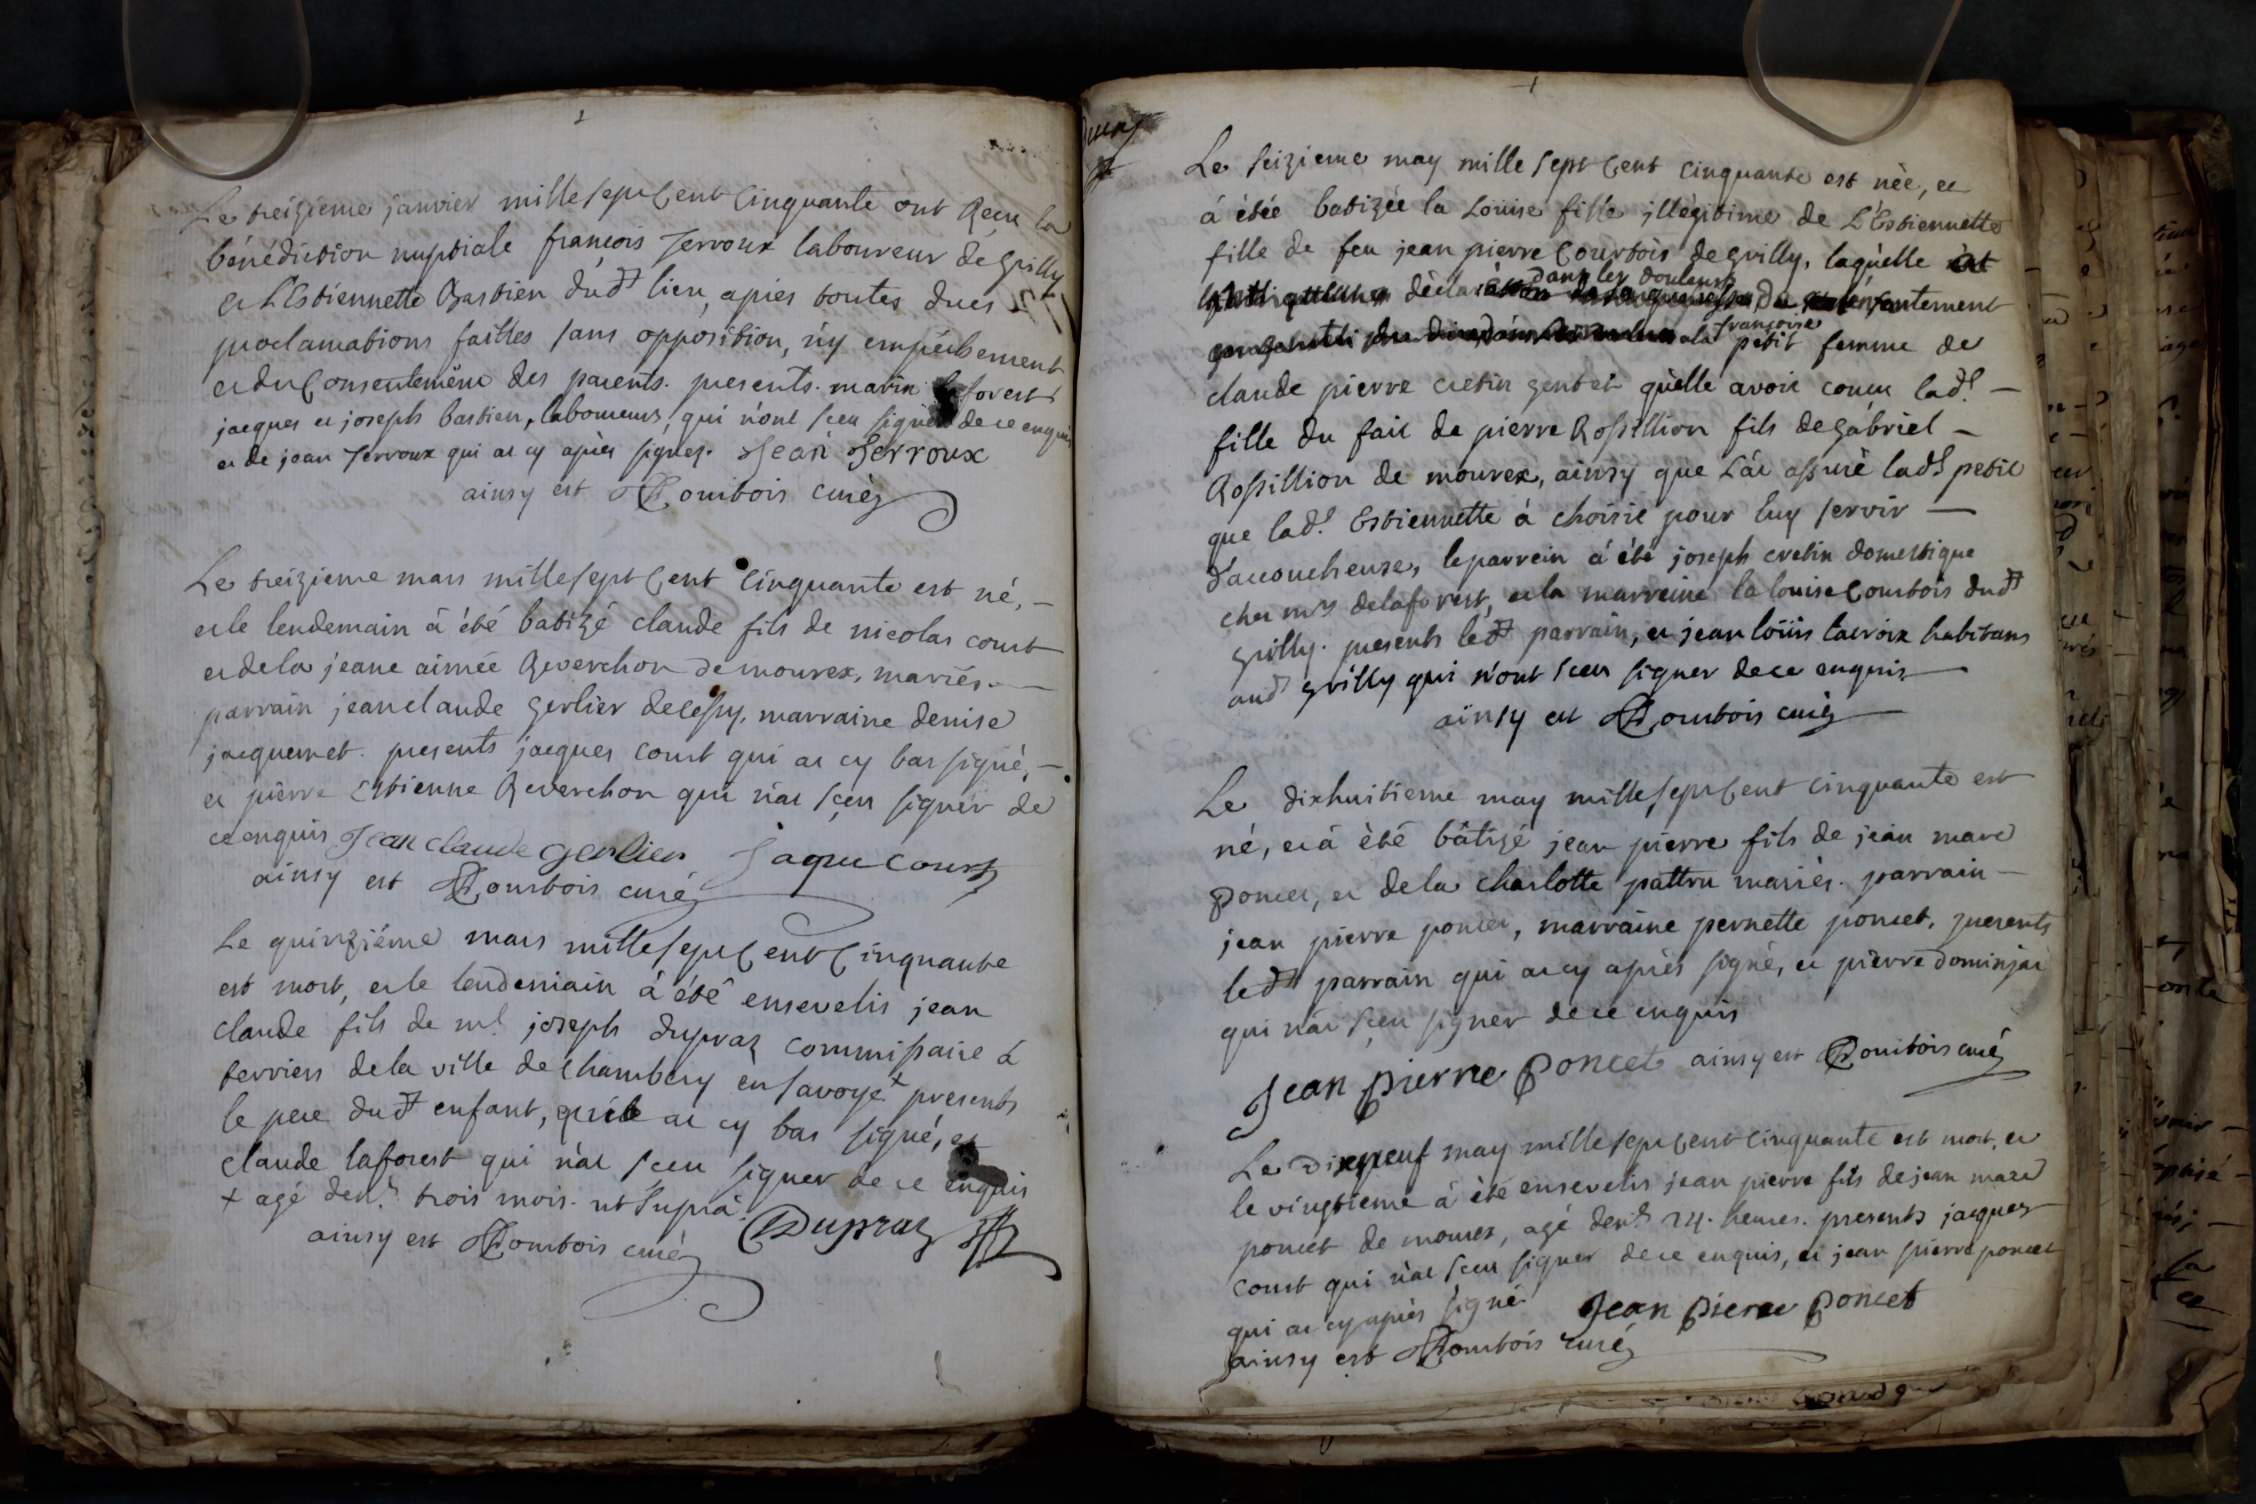 Le treizieme janvier mille sept Cent Cinquante ont Receu la
bénédiction nuptiale françois Jerroux laboureur de grilly
et L'Estiennette Bastien dudt lieu, apres toutes dues
proclamations faittes sans opposition, n'y empéchement
et du Consentement des parents. presents. marin laforest
jacques et joseph bastien, laboureurs, qui n'ont sceu signer de ce enquis
et de jean Jerroux qui at cy aprés signez. Jean Jerroux
ainsy est Courtois curéz
Le treizieme mars mille sept Cent Cinquante est né, -
et le lendemain à été batizé claude fils de nicolas court
et de la jeane aimée Reverchon de mourex, mariés. -
parrain jean claude gerlier de cessy, marraine denise
jacquemet. presents jacques court qui at cy bas signé, -
et pierre Estienne Reverchon qui n'at sceu signer de
ce enquis Jean claude gerlier jaque court
ainsy est Courtois curéz
Le quinziéme mars mille sept Cent Cinquante
est mort, et le lendemain à été ensevelis jean
claude fils de mr joseph dupraz commissaire à
terriers de la ville de chambery en savoye + presents
le pere dudt enfant, qui at cy bas signé, et
claude laforest qui n'at sceu signer de ce enquis
+ agé denv. trois mois. ut suprà
ainsy est Courtois curéz Dupraz
Le seizieme may mille sept Cent Cinquante est née, et
á étée batizée la Louise fille illégitime de L'Estiennette
fille de feu jean pierre Courtois de grilly, laquelle
dans les douleurs
déclaration du enfantement
françoise
ala petit femme de
claude pierre cretin gentet qu'elle avoit conçu lade. -
fille du fait de pierre Rossillion fils de gábriel -
Rossillion de mourex, ainsy que L'at assuré lade petit
que lade. Estiennette à choisie pour luy servir -
d'acoucheuse, le parrein à été joseph cretin domestique
chez mrs delaforest, et la marreine la louise Courtois dudt
grilly. presents ledt parrain, et jean loüis lacroix habitans
audt grilly qui n'ont sceu signer de ce enquis
ainsy est Courtois curéz
Le dixhuitieme may mille sept Cent Cinquante est
né, et à été bâtizé jean pierre fils de jean marc
poncet, et de la charlotte pattru mariés. parrain -
jean pierre poncet, marraine pernette poncet, presents
ledt parrain qui at cy aprés signé, et pierre dominjat
qui n'at sceu signer de ce enquis
Jean pierre poncet ainsy est Courtois curéz
Le Dixneuf may mille sept Cent Cinquante est mort, et
le vingtieme à été ensevelis jean pierre fils de jean marc
poncet de mourex, agé denv. 24. heures. presents jacques
court qui n'at sceu signer de ce enquis, et jean pierre poncet
qui at cy aprés signé. Jean pierre poncet
ainsy est Courtois curéz